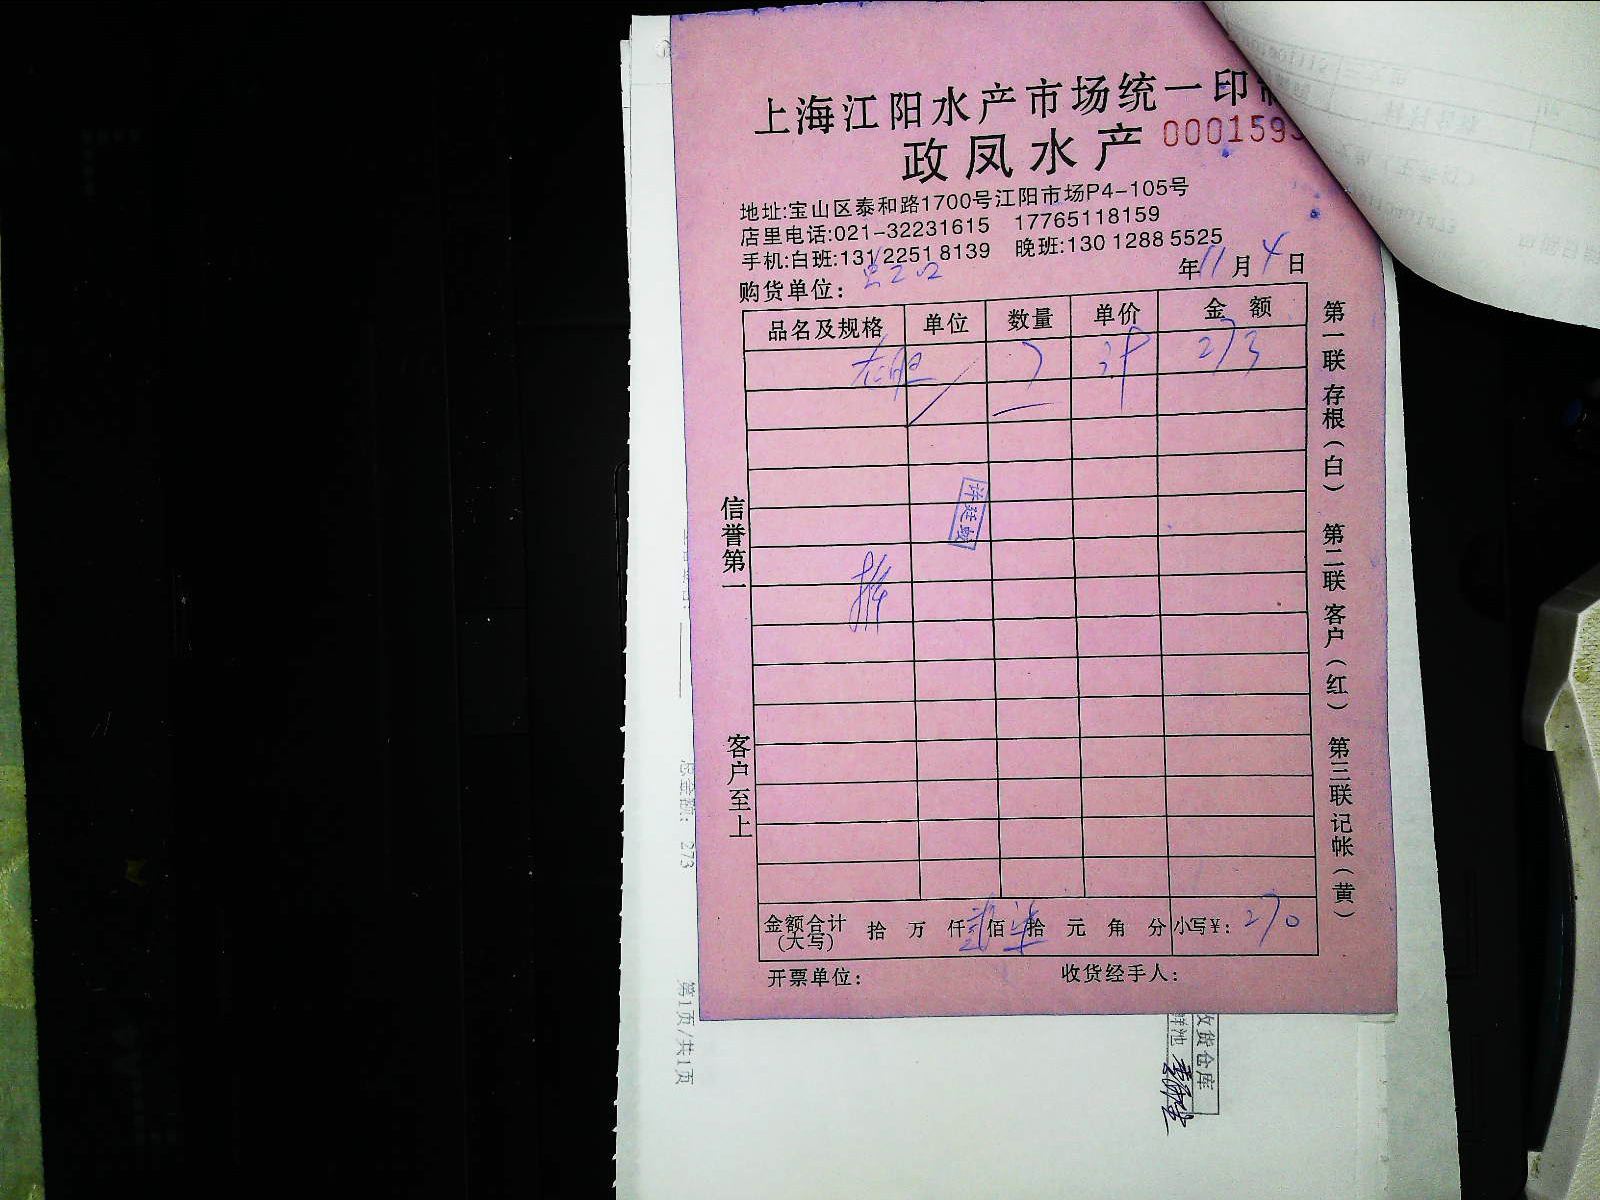 上海江阳水产市场统一印
政凤水产 000159
地址:宝山区泰和路1700号江阳市场P4-105号
店里电话:021-32231615 17765118159
手机:白班:131 2251 8139 晚班:130 1288 5525
购货单位: 年11月4日
品名及规格 单位 数量 单价 金额
7 273
信誉第一
客户至上
第一联 存根(白) 第二联 客户(红) 第三联 记帐(黄)
金额合计(大写) 拾 万 仟 贰佰 柒拾 元 角 分 小写¥: 270
开票单位: 收货经手人:
总金额: 273
第1页/共1页
收货仓库
鲜池